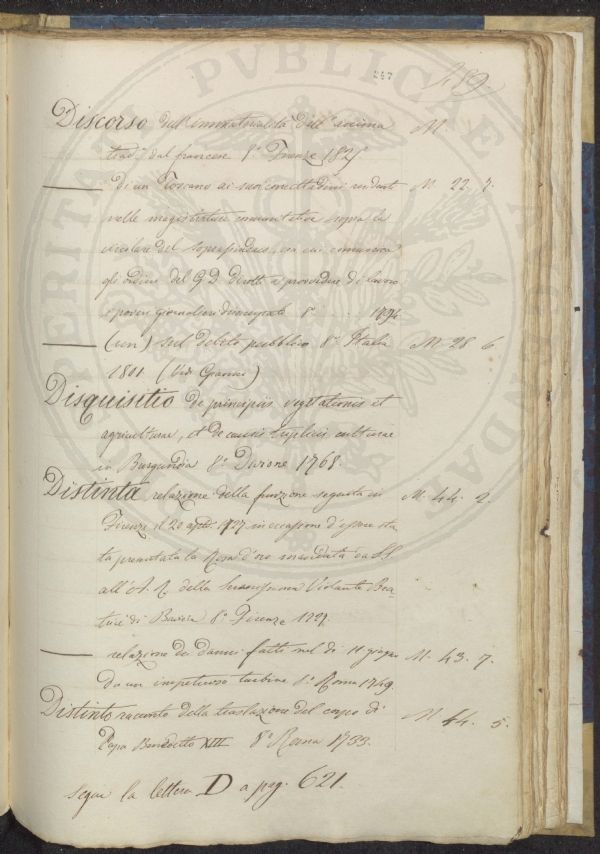 247
189.
Discorso dell'immortalità dell'anima M
trad. dal francese 8° Firenze 182
— di un Toscano ai suoi concittadini M. 22. 7.
nelle magistrature comunitative sopra la
circolare del soprasindaco, con cui comunica
gli ordini del G. D. diretti a provvedere di lavoro
i poveri giornalieri 8° . . 1794
— (un) sul debito pubblico 8° Italia M. 28. 6.
1801 (Vid
Disquisitio de principiis vegetationis et
agriculturae, et de causis triplicis culturae
in Burgundia 8° Divione 1768.
Distinta relazione della funzione seguita in M. 44. 2.
Firenze il 20 apr. 1727 in occasione d'essere sta
ta presentata la Rosa d'oro mandata da S.S.
all'A. R. della Serenissima Violante Bea
trice di Baviera 8° Firenze 1727.
— relazione dei danni fatti nel dì 11 giugno M. 43. 7.
da un impetuoso turbine 8° Roma 1749.
Distinto racconto della traslazione del corpo di M. 44. 5.
Papa Benedetto XIII 8° Roma 1733.
segue la lettera D a pag. 621.